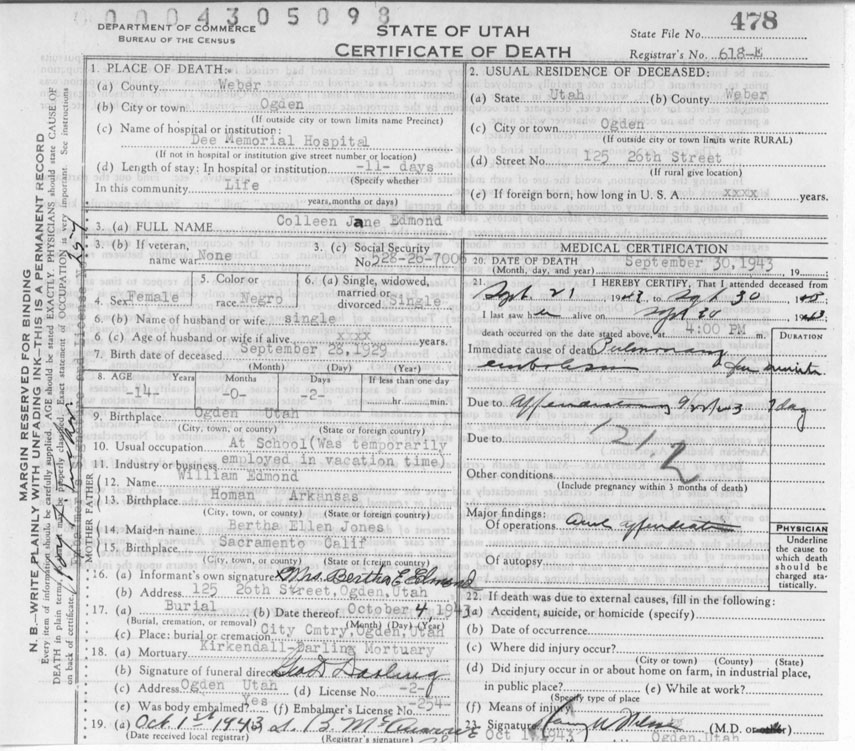 0004305098
DEPARTMENT OF COMMERCE
BUREAU OF THE CENSUS
STATE OF UTAH
CERTIFICATE OF DEATH
State File No. 478
Registrar's No. 618-E
MARGIN RESERVED FOR BINDING
N. B.—WRITE PLAINLY WITH UNFADING INK—THIS IS A PERMANENT RECORD
Every item of information should be carefully supplied. AGE should be stated EXACTLY. PHYSICIANS should state CAUSE OF
DEATH in plain terms, may be properly classified. Exact statement of OCCUPATION is very important. See instructions
on back of certificate.
1. PLACE OF DEATH:
(a) County Weber
(b) City or town Ogden
(If outside city or town limits name Precinct)
(c) Name of hospital or institution:
Dee Memorial Hospital
(If not in hospital or institution give street number or location)
(d) Length of stay: In hospital or institution -11- days
(Specify whether
In this community Life
years, months or days)
2. USUAL RESIDENCE OF DECEASED:
(a) State Utah (b) County Weber
(c) City or town Ogden
(If outside city or town limits write RURAL)
(d) Street No. 125 26th Street
(If rural give location)
(e) If foreign born, how long in U. S. A. xxxx years.
3. (a) FULL NAME Colleen Jane Edmond
3. (b) If veteran, name war None
3. (c) Social Security No. 528-26-7006
4. Sex Female
5. Color or race Negro
6. (a) Single, widowed, married or divorced Single
6. (b) Name of husband or wife single
6. (c) Age of husband or wife if alive xxxx years.
7. Birth date of deceased September 28, 1929
(Month) (Day) (Year)
8. AGE Years Months Days If less than one day
-14- -0- -2- hr. min.
9. Birthplace Ogden Utah
(City, town, or county) (State or foreign country)
10. Usual occupation At School(Was temporarily
11. Industry or business employed in vacation time)
FATHER
12. Name William Edmond
13. Birthplace Homan Arkansas
(City, town, or county) (State or foreign country)
MOTHER
14. Maiden name Bertha Ellen Jones
15. Birthplace Sacramento Calif
(City, town, or county) (State or foreign country)
16. (a) Informant's own signature Mrs. Bertha E Edmond
(b) Address 125 26th Street, Ogden, Utah
17. (a) Burial (b) Date thereof October 4, 1943
(Burial, cremation, or removal) (Month) (Day) (Year)
(c) Place: burial or cremation City Cmtry, Ogden, Utah
18. (a) Mortuary Kirkendall-Darling Mortuary
(b) Signature of funeral director Darling
(c) Address Ogden Utah (d) License No. -2-
(e) Was body embalmed Yes (f) Embalmer's License No. -254-
19. (a) Oct. 1st 1943
(Date received local registrar) (Registrar's signature)
MEDICAL CERTIFICATION
20. DATE OF DEATH September 30, 1943
(Month, day, and year) 19
21. I HEREBY CERTIFY, That I attended deceased from
Sept. 21 1943, to Sept 30 1943
I last saw her alive on Sept 30 1943
death occurred on the date stated above, at 4:00 PM m.
DURATION
Immediate cause of death Pulmonary
embolism few minutes
Due to 9 day
Due to
121.2
Other conditions
(Include pregnancy within 3 months of death)
Major findings:
Of operations
Of autopsy
PHYSICIAN
Underline
the cause to
which death
should be
charged sta-
tistically.
22. If death was due to external causes, fill in the following:
(a) Accident, suicide, or homicide (specify)
(b) Date of occurrence
(c) Where did injury occur?
(City or town) (County) (State)
(d) Did injury occur in or about home on farm, in industrial place,
in public place? (e) While at work?
(Specify type of place
(f) Means of injury
23. Signature (M.D. or other)
Oct 1 1943 Ogden, Utah